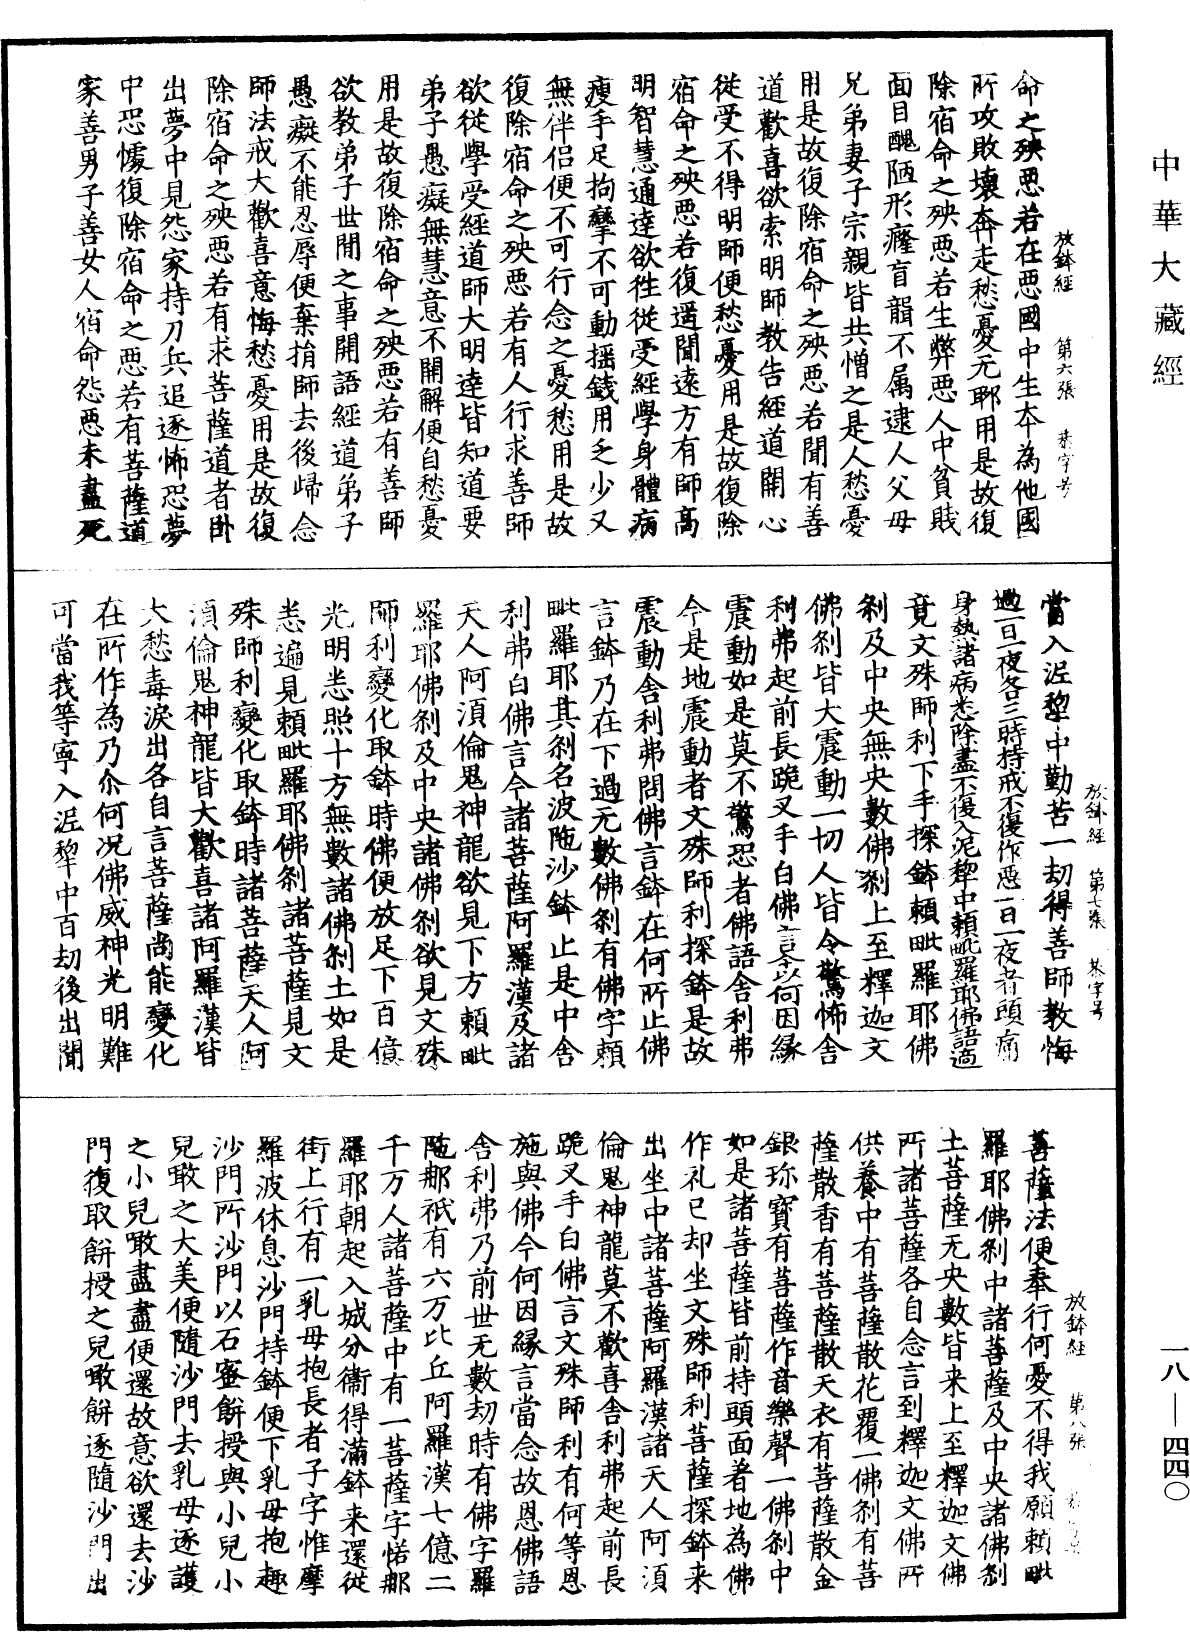 中華大藏經
放鉢經　第六張　恭字号
命之殃惡若在惡國中生夲為他國
所攻敗壞奔走愁憂无耶用是故復
除宿命之殃惡若生弊惡人中貧賎
面目醜陋形癃盲聾不属逮人父母
兄弟妻子宗親皆共憎之是人愁憂
用是故復除宿命之殃惡若聞有善
道歡喜欲索明師教告經道開心
從受不得明師便愁憂用是故復除
宿命之殃惡若復遥聞遠方有師髙
明智慧通達欲徃從受經學身體病
瘦手足拘攣不可動揺錢用乏少又
無伴侣便不可行念之憂愁用是故
復除宿命之殃惡若有人行求善師
欲從學受經道師大明達皆知道要
弟子愚癡無慧意不開解便自愁憂
用是故復除宿命之殃惡若有善師
欲教弟子世閒之事開語經道弟子
愚癡不能忍辱便棄捐師去後歸念
師法戒大歡喜意悔愁憂用是故復
除宿命之殃惡若有求菩薩道者卧
出夢中見怨家持刀兵追逐怖恐夢
中恐懅復除宿命之惡若有菩薩道
家善男子善女人宿命怨惡未盡死
放鉢經　第七張　恭字号
當入泥犂中勤苦一劫得善師教悔
過一日一夜各三時持戒不復作惡一日一夜者頭痛
身熱諸病悉除盡不復入泥犂中頼毗羅耶佛語適
竟文殊師利下手探鉢頼毗羅耶佛
刹及中央無央數佛刹上至釋迦文
佛刹皆大震動一切人皆令驚怖舍
利弗起前長跪叉手白佛言今以何因緣
震動如是莫不驚恐者佛語舍利弗
今是地震動者文殊師利探鉢是故
震動舍利弗問佛言鉢在何所止佛
言鉢乃在下過元數佛刹有佛字頼
毗羅耶其刹名波陁沙鉢止是中舍
利弗白佛言今諸菩薩阿羅漢及諸
天人阿湏倫鬼神龍欲見下方頼毗
羅耶佛刹及中央諸佛刹欲見文殊
師利變化取鉢時佛便放足下百億
光明悉照十方無數諸佛刹土如是
悉遍見頼毗羅耶佛刹諸菩薩見文
殊師利變化取鉢時諸菩薩天人阿
湏倫鬼神龍皆大歡喜諸阿羅漢皆
大愁毒淚出各自言菩薩尚能變化
在所作為乃尒何况佛威神光明難
可當我等寧入泥犂中百劫後出聞
放鉢經　第八張
菩薩法便奉行何憂不得我願頼毗
羅耶佛刹中諸菩薩及中央諸佛刹
土菩薩无央數皆来上至釋迦文佛
所諸菩薩各自念言到釋迦文佛所
供養中有菩薩散花覆一佛刹有菩
薩散香有菩薩散天衣有菩薩散金
銀珎寶有菩薩作音樂聲一佛刹中
如是諸菩薩皆前持頭面著地為佛
作礼已却坐文殊師利菩薩探鉢来
出坐中諸菩薩阿羅漢諸天人阿湏
倫鬼神龍莫不歡喜舍利弗起前長
跪叉手白佛言文殊師利有何等恩
施與佛今何因緣言當念故恩佛語
舍利弗乃前世无數劫時有佛字羅
陁那祇有六万比丘阿羅漢七億二
千万人諸菩薩中有一菩薩字惹那
羅耶朝起入城分衞得滿鉢来還從
街上行有一乳母抱長者子字惟摩
羅波休息沙門持鉢便下乳母抱趣
沙門所沙門以石蜜餅授與小兒小
兒噉之大美便隨沙門去乳母逐護
之小兒噉盡盡便還故意欲還去沙
門復取餅授之兒噉餅逐隨沙門出
一八—四四〇